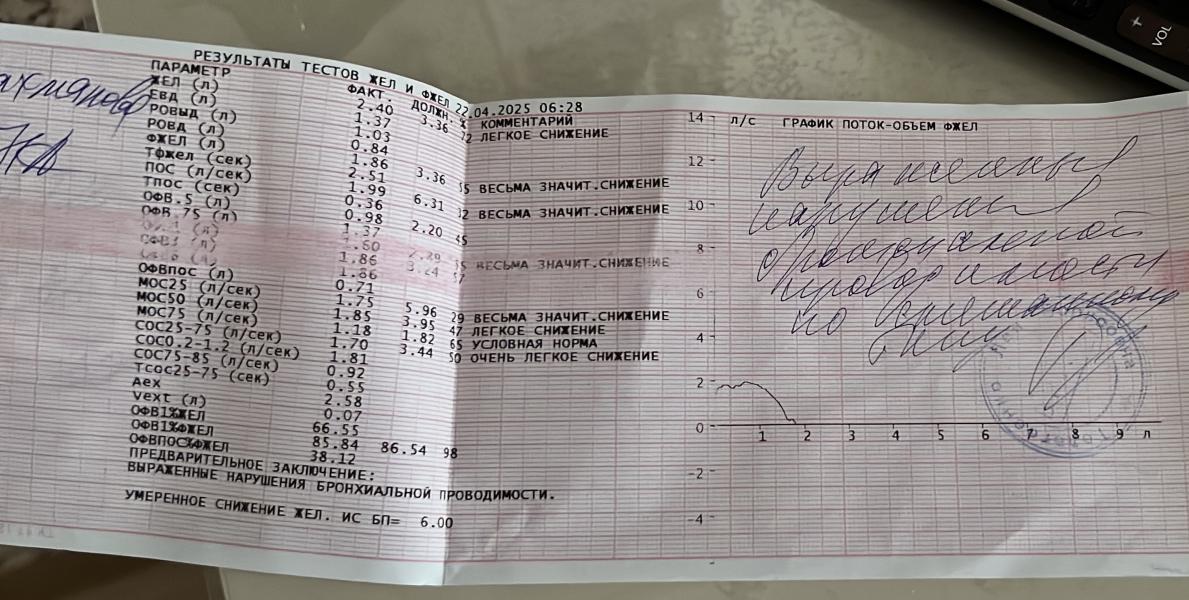 РЕЗУЛЬТАТЫ ТЕСТОВ ЖЕЛ И ФЖЕЛ 22.04.2025 06:28
ПАРАМЕТР ФАКТ. ДОЛЖН. % КОММЕНТАРИЙ
ЖЕЛ (л) 2.40 3.36 72 ЛЕГКОЕ СНИЖЕНИЕ
ЕВД (л) 1.37
РОВЫД (л) 1.03
РОВД (л) 0.84
ФЖЕЛ (л) 1.86 3.36 55 ВЕСЬМА ЗНАЧИТ.СНИЖЕНИЕ
Тфжел (сек) 2.51
ПОС (л/сек) 1.99 6.31 32 ВЕСЬМА ЗНАЧИТ.СНИЖЕНИЕ
Тпос (сек) 0.36
ОФВ.5 (л) 0.98 2.20 45
ОФВ.75 (л) 1.37
ОФВ1 (л) 1.60 55 ВЕСЬМА ЗНАЧИТ.СНИЖЕНИЕ
1.86 3.24 57
1.86
ОФВпос (л) 0.71
МОС25 (л/сек) 1.75 5.96 29 ВЕСЬМА ЗНАЧИТ.СНИЖЕНИЕ
МОС50 (л/сек) 1.85 3.95 47 ЛЕГКОЕ СНИЖЕНИЕ
МОС75 (л/сек) 1.18 1.82 65 УСЛОВНАЯ НОРМА
СОС25-75 (л/сек) 1.70 3.44 50 ОЧЕНЬ ЛЕГКОЕ СНИЖЕНИЕ
СОС0.2-1.2 (л/сек) 1.81
СОС75-85 (л/сек) 0.92
Тсос25-75 (сек) 0.55
Аех 2.58
Vext (л) 0.07
ОФВ1%ЖЕЛ 66.55
ОФВ1%ФЖЕЛ 85.84 86.54 98
ОФВПОС%ФЖЕЛ 38.12
ПРЕДВАРИТЕЛЬНОЕ ЗАКЛЮЧЕНИЕ:
ВЫРАЖЕННЫЕ НАРУШЕНИЯ БРОНХИАЛЬНОЙ ПРОВОДИМОСТИ.
УМЕРЕННОЕ СНИЖЕНИЕ ЖЕЛ. ИС БП= 6.00
л/с ГРАФИК ПОТОК-ОБЪЕМ ФЖЕЛ
14
12
10
8
6
4
2
0
-2
-4
1 2 3 4 5 6 7 8 9 л
Выраженные
нарушения
бронхиальной
проводимости
по смешанному
типу
+
VOL